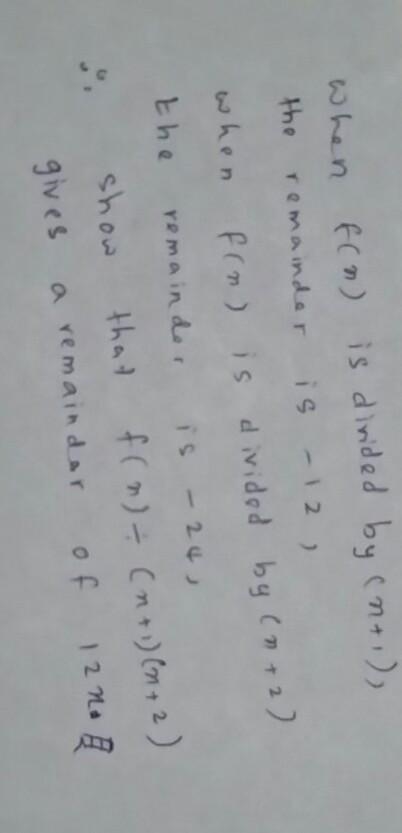 when f(x) is divided by (x+1),
the remainder is -12,
when f(x) is divided by (x+2)
the remainder is -24,
∴ show that f(x) ÷ (x+1)(x+2)
gives a remainder of 12x